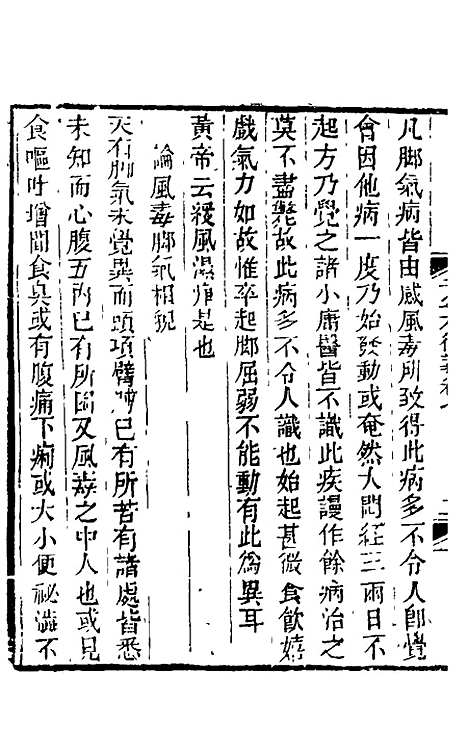 凡脚氣病皆由感風毒所致得此病多不令人即覺
會因他病一度乃始發動或奄然大悶經三兩日不
起方乃覺之諸小庸醫皆不識此疾謾作餘病治之
莫不盡斃故此病多不令人識也始起甚微食飲嬉
戲氣力如故惟卒起脚屈弱不能動有此為異耳
黃帝云緩風濕痹是也
論風毒脚氣相貌
夫有脚氣未覺異而頭項臂膊已有所苦有諸處皆悉
未知而心腹五內已有所困又風毒之中人也或見
食嘔吐增聞食臭或有腹痛下痢或大小便祕澁不